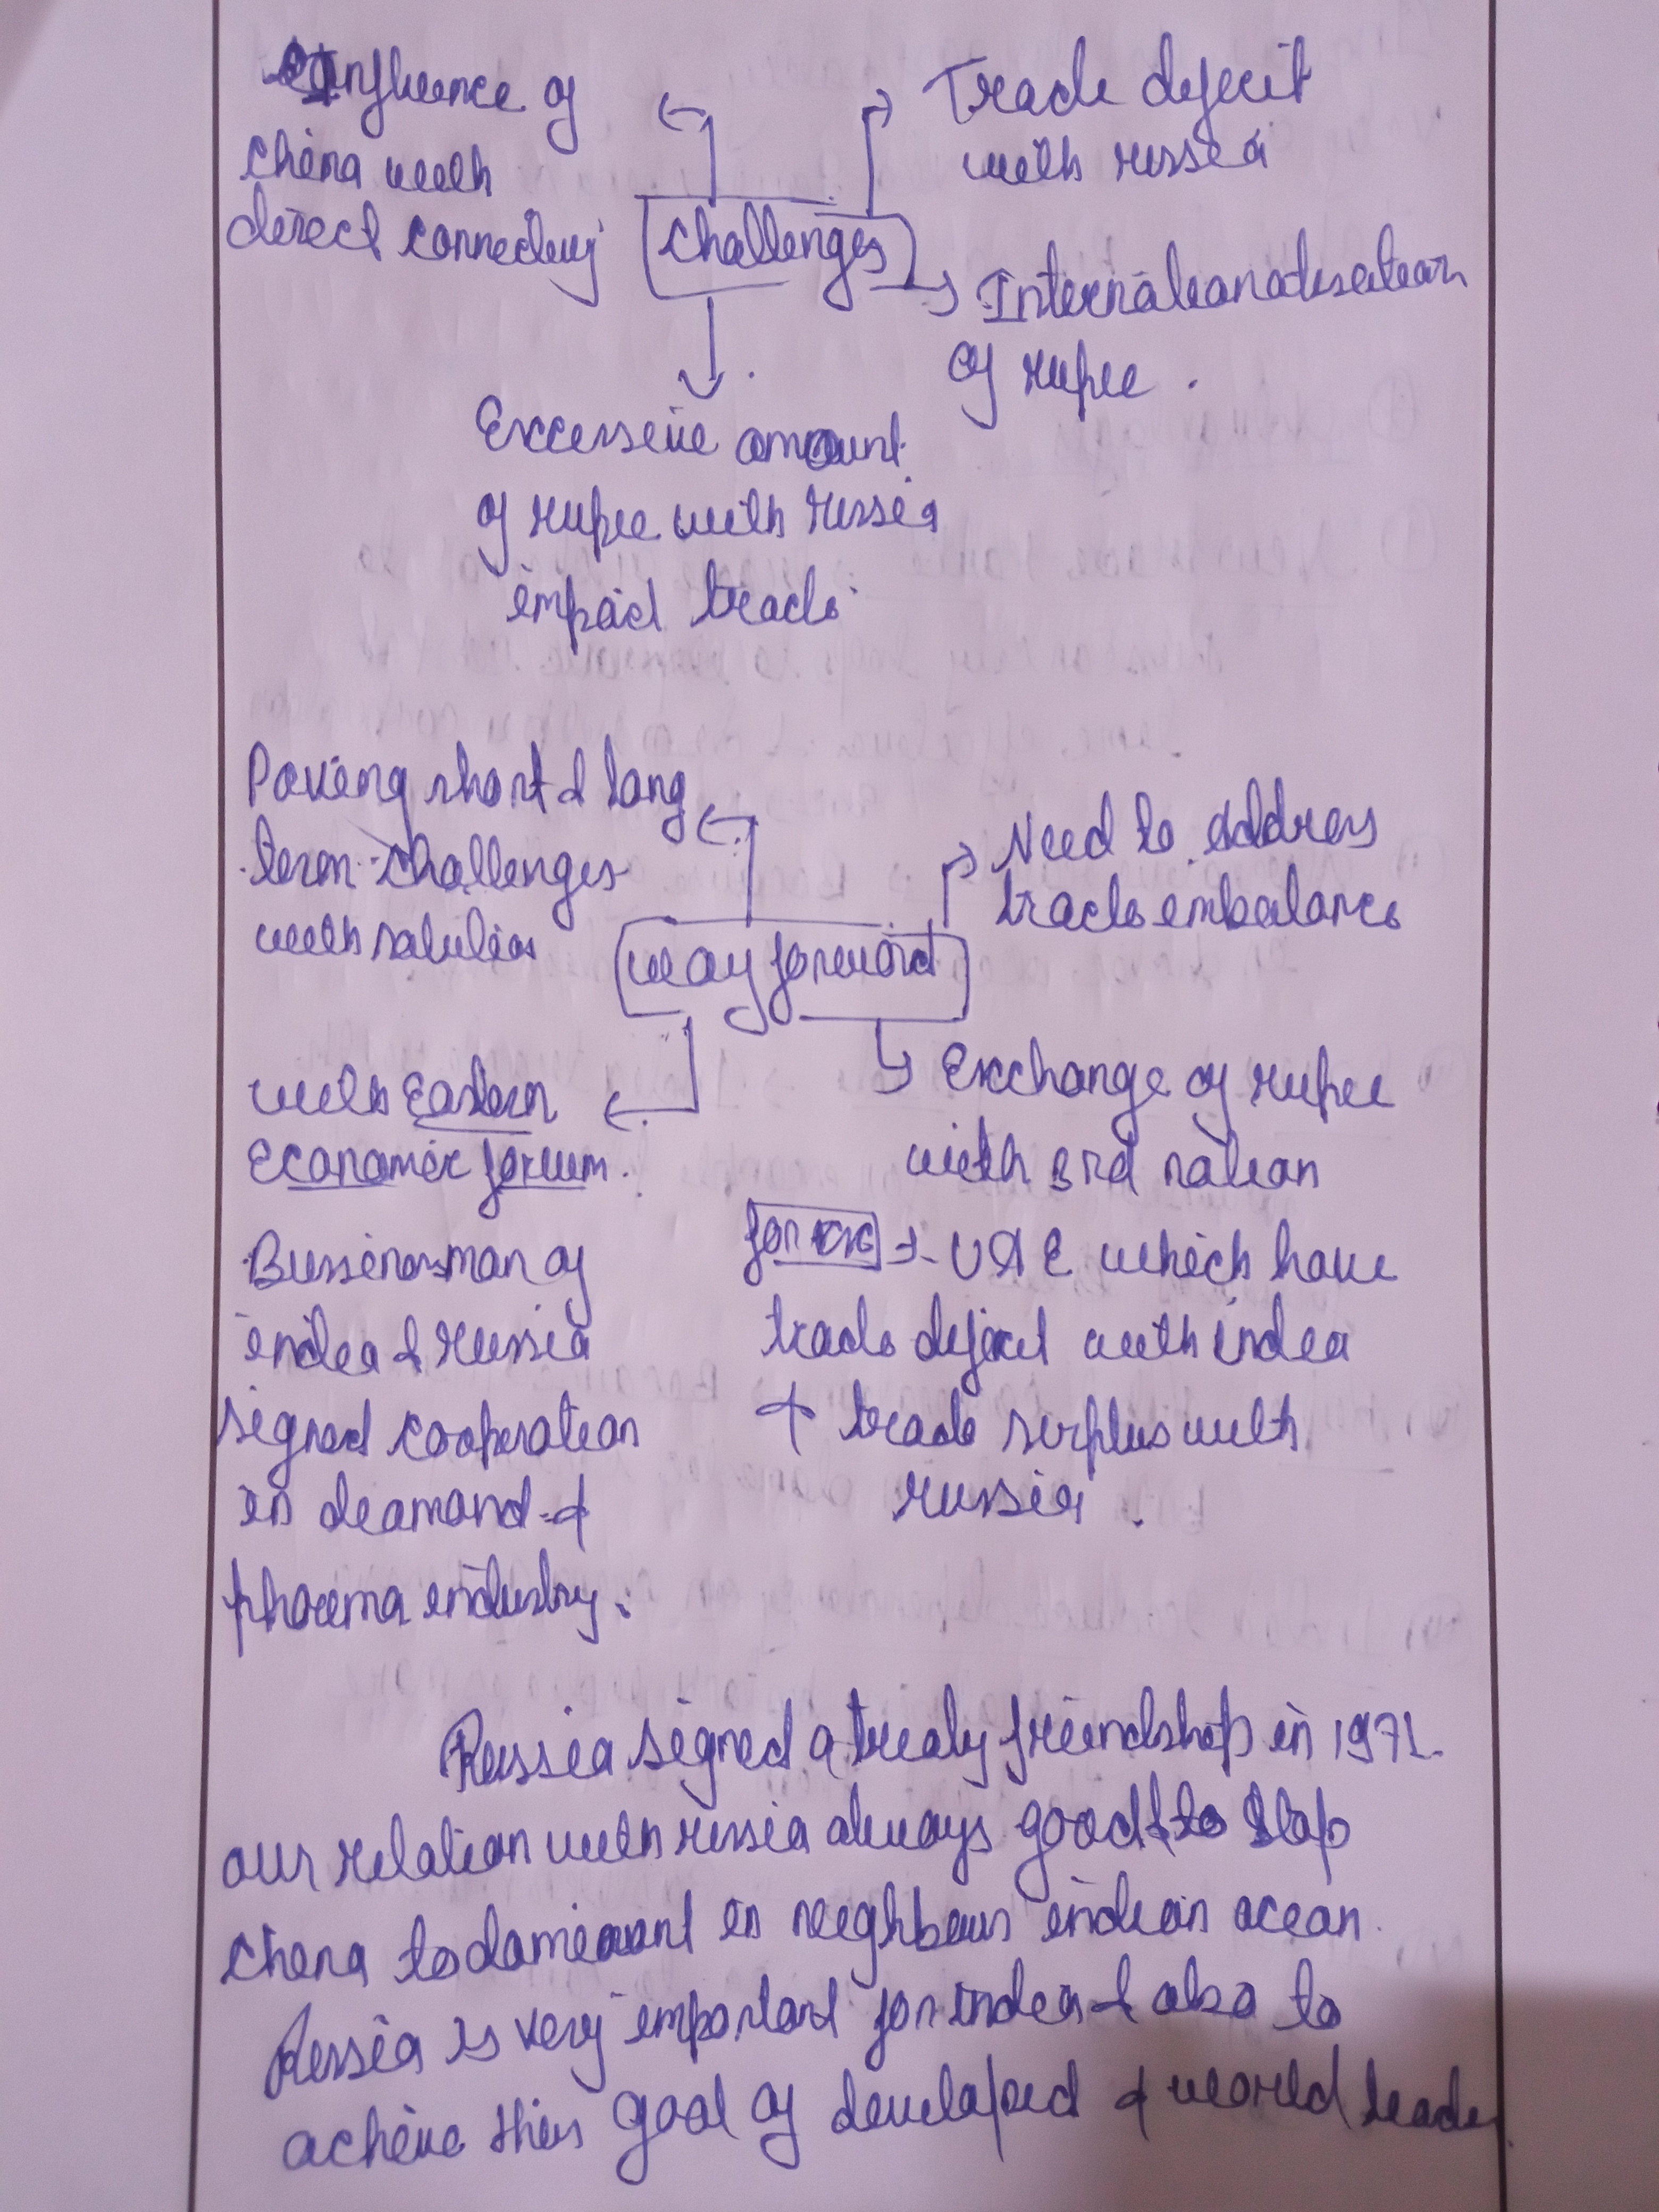 Influence of
China with
direct connectivity
Trade deficit
with russia
Challenges
Internationalisation
of rupee.
Excessive amount
of rupee with russia
impact trade
Paving short & long
term challenges
with
Need to address
trade imbalance
way forward
with Eastern
Economic forum.
Exchange of rupee
with 3rd nation
Bussinessman of
india & russia
signed cooperation
in deamand &
pharma industry.
for ex → UAE which have
trade deficit with india
+ trade surplus with
russia.
Russia signed a treaty friendship in 1971.
our relation with russia always good & to stop
China to dominant in neighbours indian ocean.
Russia is very important for india & also to
achieve their goal of developed & world leader